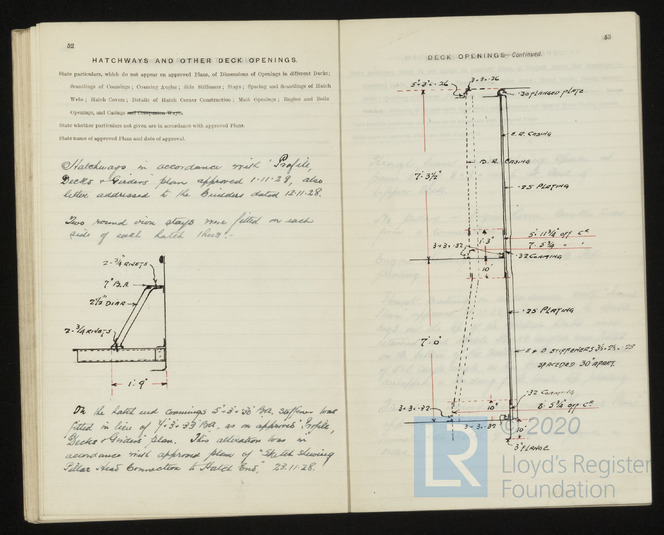 52
HATCHWAYS AND OTHER DECK OPENINGS.
State particulars, which do not appear on approved Plans, of Dimensions of Openings in different Decks;
Scantlings of Coamings; Coaming Angles; Side Stiffeners; Stays; Spacing and Scantlings of Hatch
Webs; Hatch Covers; Details of Hatch Corner Construction; Mast Openings; Engine and Boiler
Openings, and Casings and Companion Ways.
State whether particulars not given are in accordance with approved Plans.
State name of approved Plans and date of approval.
Hatchways in accordance with "Profile,
Decks & Girders" plan approved 1·11·28, also
letter addressed to the Builders dated 12·11·28.
Two round iron stays were fitted on each
side of each hatch thus:-
2-¾ RIVETS
7" B.A.
2½" DIAR
2-¾ RIVETS
1'·9"
On the hatch end coamings 5"·3"·38 B.A. stiffener was
fitted in lieu of 7·3·39 B.A. as on approved "Profile,
Decks & Girders" plan. This alteration was in
accordance with approved plan of "Sketch shewing
Pillar Head Connection to Hatch End." 23·11·28.
53
DECK OPENINGS—Continued.
3·3·26
·30 FLANGED PLATE
B.R. CASING
7'·3½"
·25 PLATING
1'·3"
3·3·32
·32 COAMING
10"
7'·0"
·25 PLATING
SPACED 30" APART
·32 COAMING
3·3·32
10"
3·3·32
10"
3" FLANGE
LR
© 2020
Lloyd's Register
Foundation